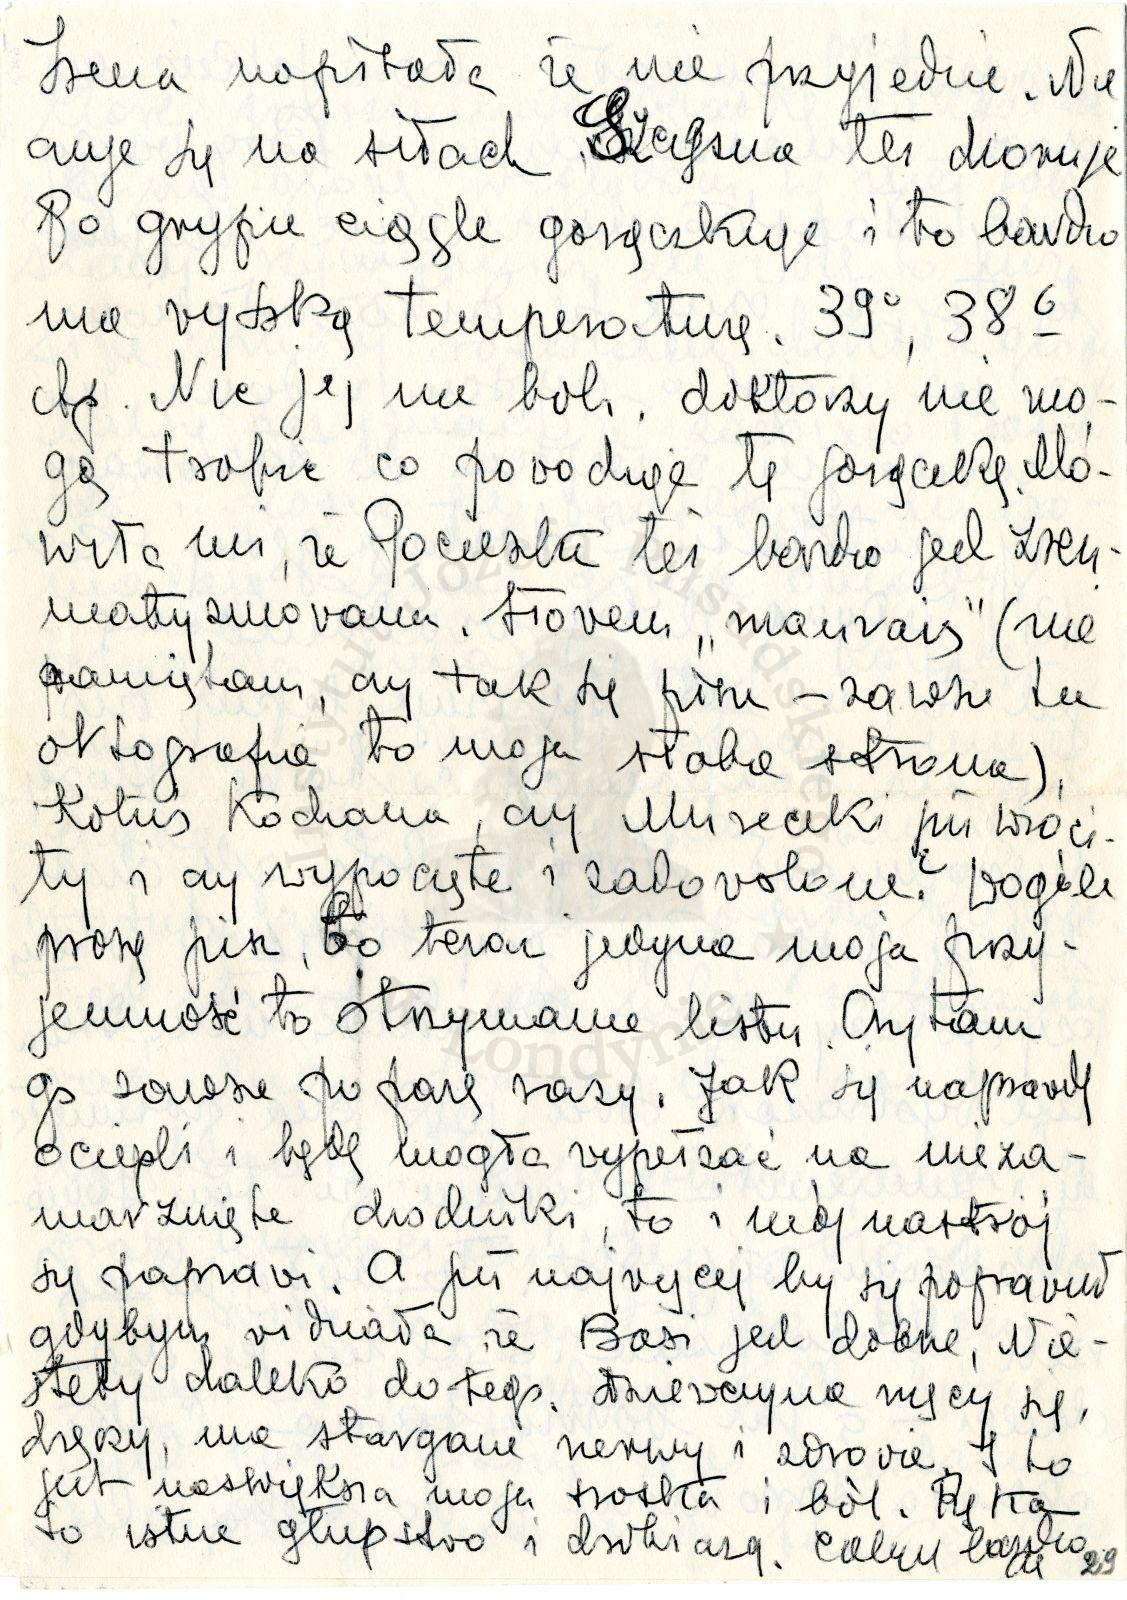 Irena napisała że nie przyjedzie. Nie
czuje się na siłach. Szczęsna też choruje
Po grypie ciągle gorączkuje i to bardzo
ma wysoką temperaturę. 39°, 38⁶
itp. Nic jej nie boli, doktorzy nie mo-
gą trafić co powoduje tę gorączkę. Mó-
wiła mi, że Pocieszka też bardzo jest zreu-
matyzmowana. Słowem „mauvais" (nie
pamiętam, czy tak się pisze – zawsze ta
ortografia to moja słaba strona).
Kotuś Kochana, czy Mireczki już wróci-
ły i czy wypoczęte i zadowolone? Wogóle
proszę pisz, bo teraz jedyna moja przy-
jemność to otrzymanie listu. Czytam
go zawsze po parę razy. Jak się naprawdę
ociepli i będę mogła wypełzać na nieza-
marznięte chodniki, to i mój nastrój
się poprawi. A już najwięcej by się poprawił
gdybym widziała że Basi jest dobrze. Nie-
stety daleko do tego. Dziewczyna męczy się,
dręczy, ma stargane nerwy i zdrowie. I to
jest największa moja troska i ból. Ręka
to istne głupstwo i drobiazg. Całuję bardzo
29